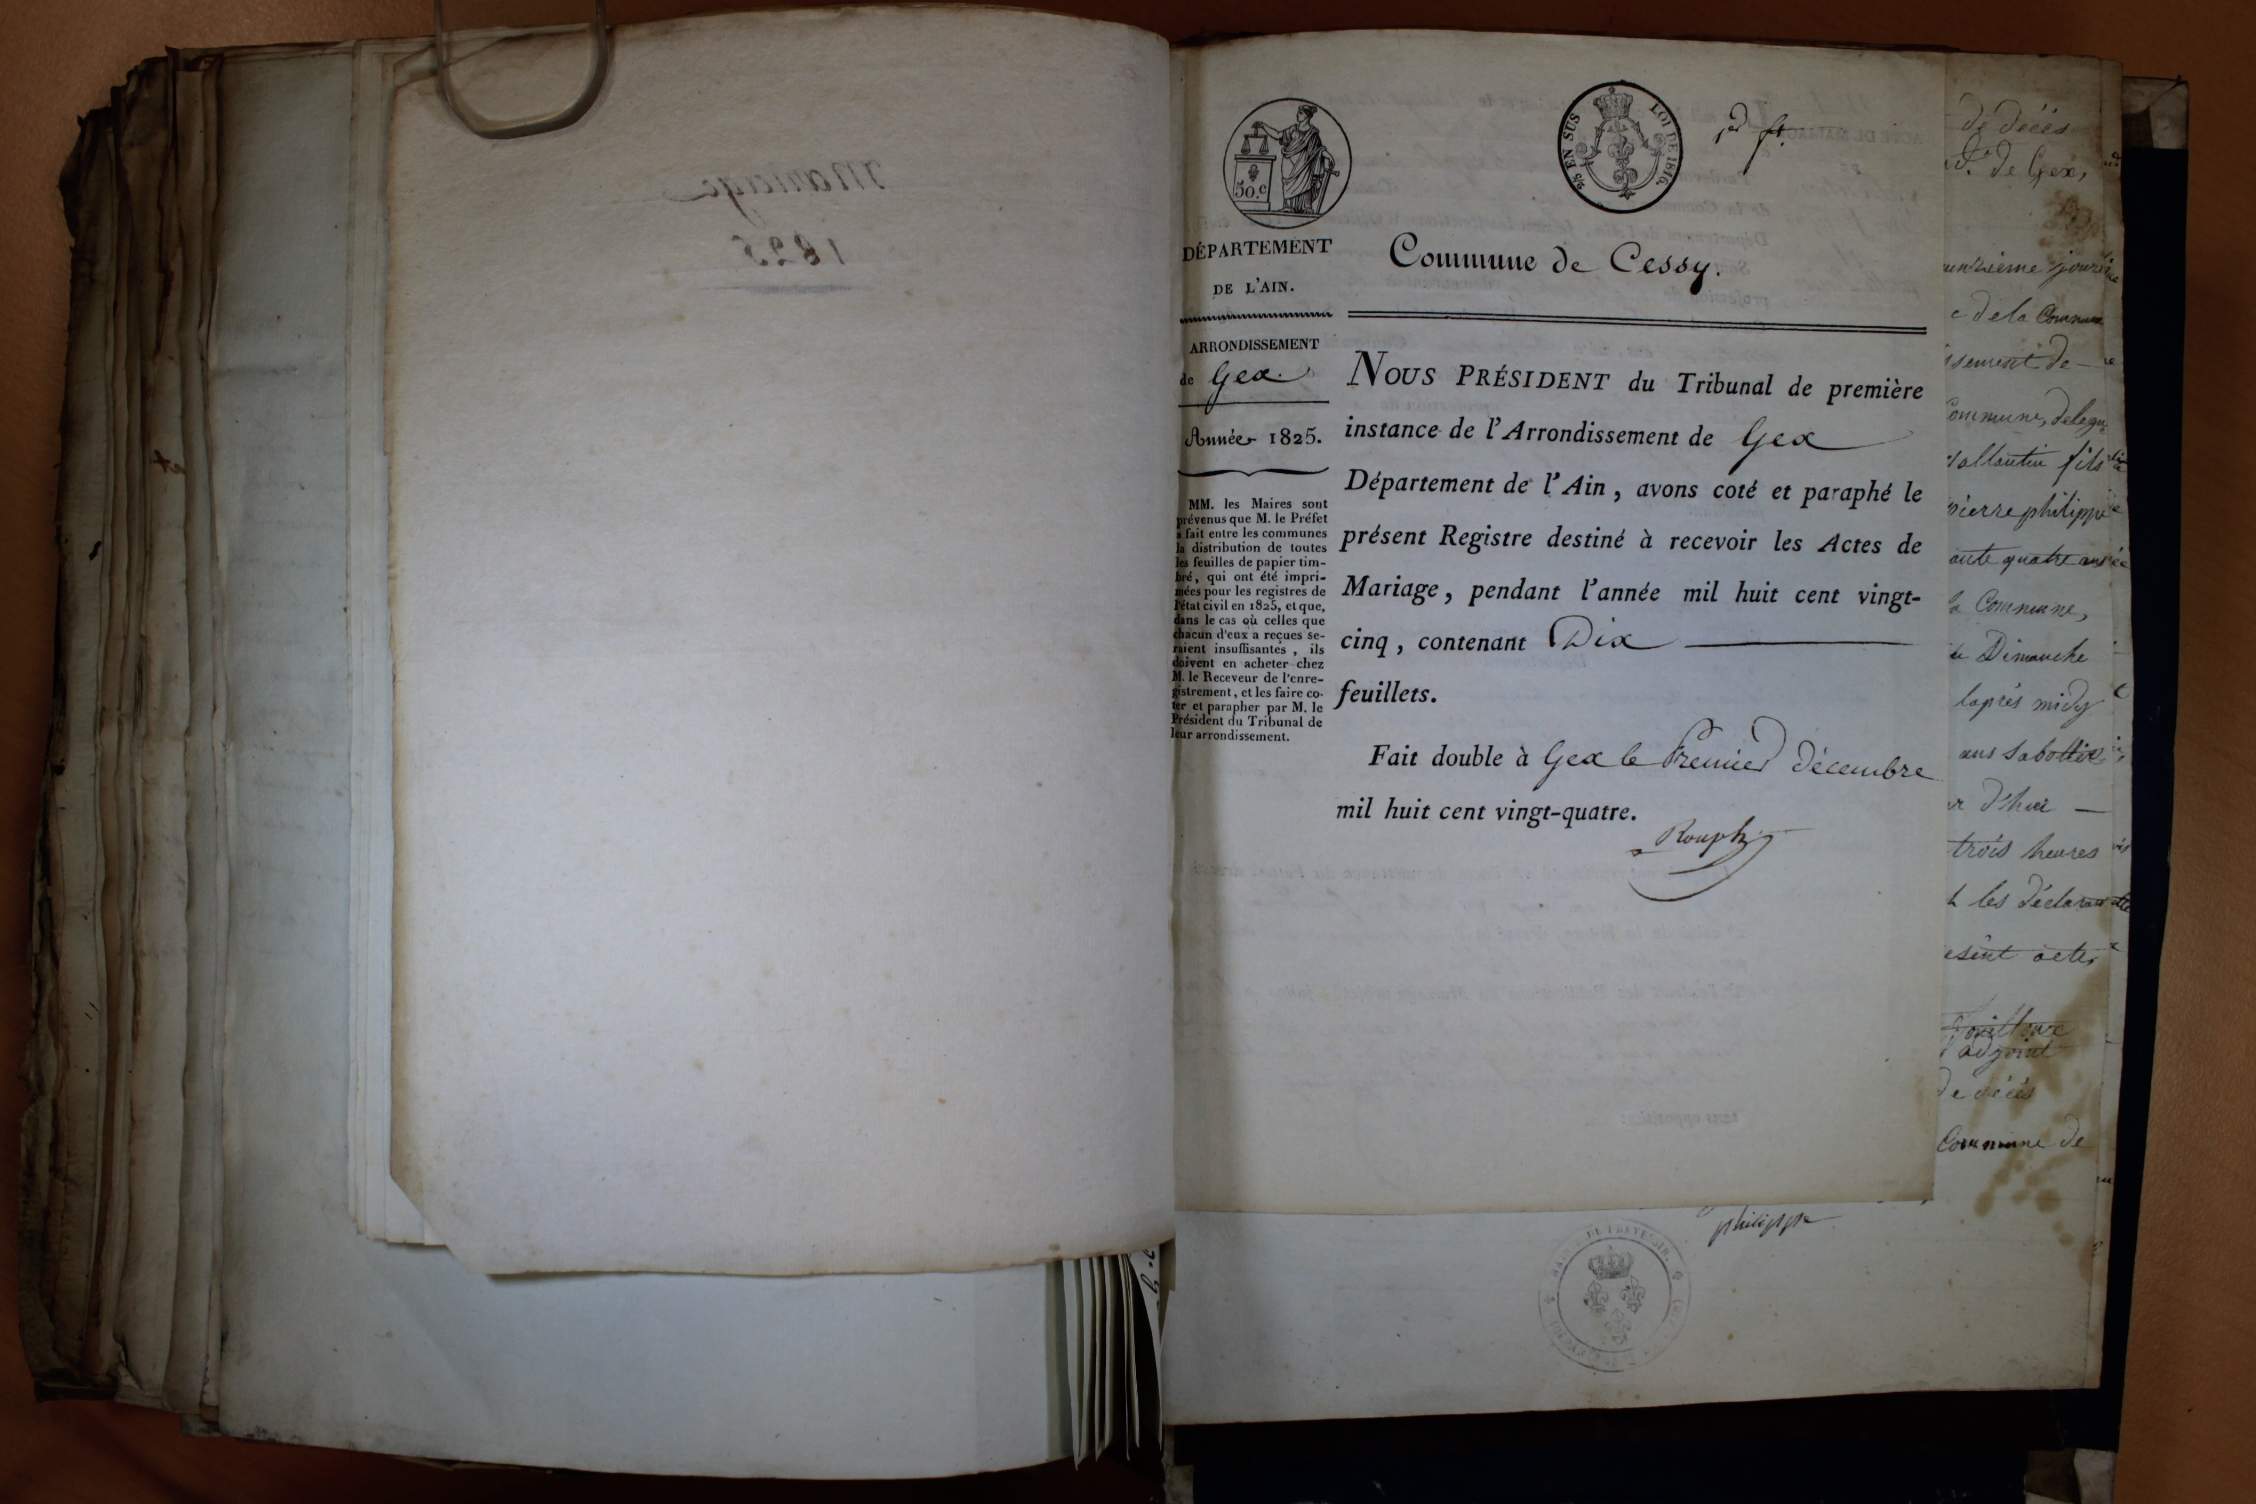 Mariage
1825
50.c
25 EN SUS
LOI DE 1816.
1er ft.
DÉPARTEMENT
DE L'AIN.
ARRONDISSEMENT
de Gex.
Année 1825.
MM. les Maires sont
prévenus que M. le Préfet
a fait entre les communes
la distribution de toutes
les feuilles de papier tim-
bré, qui ont été impri-
mées pour les registres de
l'état civil en 1825, et que,
dans le cas où celles que
chacun d'eux a reçues se-
raient insuffisantes, ils
doivent en acheter chez
M. le Receveur de l'enre-
gistrement, et les faire co-
ter et parapher par M. le
Président du Tribunal de
leur arrondissement.
Commune de Cessy.
NOUS PRÉSIDENT du Tribunal de première
instance de l'Arrondissement de Gex
Département de l'Ain, avons coté et paraphé le
présent Registre destiné à recevoir les Actes de
Mariage, pendant l'année mil huit cent vingt-
cinq, contenant Dix
feuillets.
Fait double à Gex le Premier décembre
mil huit cent vingt-quatre.
Rouph
de décès
de Gex,
jour
de la Commune
de
Commune,
fils
pierre philippe
quatre ans
la Commune,
Dimanche
laprés midy
ans
d'hui
trois heures
les
acte,
adjoint
de décès
Commune de
philippe